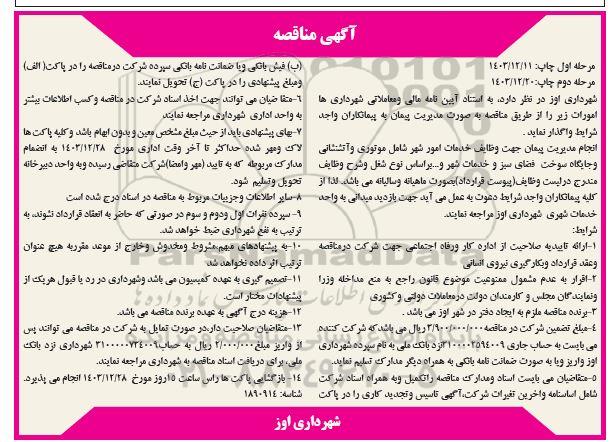 آگهی مناقصه
مرحله اول چاپ: ۱۴۰۳/۱۲/۱۱
مرحله دوم چاپ: ۱۴۰۳/۱۲/۲۰
شهرداری اوز در نظر دارد، به استناد آیین نامه مالی ومعاملاتی شهرداری ها
امورات زیر را از طریق مناقصه به صورت مدیریت پیمان به پیمانکاران واجد
شرایط واگذار نماید .
انجام مدیریت پیمان جهت وظایف خدمات امور شهر شامل موتوری وآتشنشانی
وجایگاه سوخت فضای سبز و خدمات شهر و...براساس نوع شغل وشرح وظایف
مندرج درلیست وظایف(پیوست قرارداد)بصورت ماهیانه وسالیانه می باشد. لذا از
کلیه پیمانکاران واجد شرایط دعوت به عمل می آید جهت بازدید میدانی به واحد
خدمات شهری شهرداری اوز مراجعه نمایند.
شرایط:
۱-ارائه تاییدیه صلاحیت از اداره کار ورفاه اجتماعی جهت شرکت درمناقصه
وعقد قرارداد وبکارگیری نیروی انسانی
۲-اقرار به عدم مشمول ممنوعیت موضوع قانون راجع به منع مداخله وزرا
ونمایندگان مجلس و کارمندان دولت درمعاملات دولتی وکشوری
۳-برنده مناقصه ملزم به ایجاد دفتر در شهر اوز می باشد .
۴-مبلغ تضمین شرکت در مناقصه ۳/۹۰۰/۰۰۰/۰۰۰ریال می باشدکه شرکت کننده
می بایست به حساب جاری ۳۱۰۰۰۰۲۵۹۴۰۰۹نزد بانک ملی به نام سپرده شهرداری
اوز واریز ویا به صورت ضمانت نامه بانکی به همراه دیگر مدارک تسلیم نماید.
۵-متقاضیان می بایست اسناد ومدارک مناقصه راتکمیل وبه همراه اسناد شرکت
شامل اساسنامه واخرین تغیرات شرکت،آگهی تاسیس وتجدید کاری را در پاکت
(ب) فیش بانکی ویا ضمانت نامه بانکی سپرده شرکت درمناقصه را در پاکت( الف)
ومبلغ پیشنهادی را در پاکت (ج) تحویل نمایند.
۶-متقاضیان می توانند جهت اخذ اسناد شرکت در مناقصه وکسب اطلاعات بیشتر
به واحد اداری شهرداری مراجعه نمایند
۷-بهای پیشنهادی باید از حیث مبلغ مشخص معین و بدون ابهام باشد و کلیه پاکت ها
لاک ومهر شده حداکثر تا آخر وقت اداری مورخ ۱۴۰۳/۱۲/۲۸ به انضمام
مدارک مربوطه که به تایید (مهر وامضا)شرکت متقاضی رسیده وبه واحد دبیرخانه
تحویل وتسلیم شود.
۸-سایر اطلاعات وجزییات مربوط به مناقصه در اسناد درج شده است
۹- سپرده نفرات اول ودوم و سوم در صورتی که حاضر به انعقاد قرارداد نشوند، به
ترتیب به نفع شهرداری ضبط خواهد شد.
۱۰-به پیشنهادهای مبهم،مشروط ومخدوش وخارج از موعد مقرربه هیچ عنوان
ترتیب اثر داده نخواهد شد
۱۱-تصمیم گیری به عهده کمیسیون می باشد وشهرداری در رد یا قبول هریک از
پیشنهادات مختار است.
۱۲-هزینه درج آگهی به عهده برنده مناقصه می باشد.
۱۳-متقاضیان صلاحیت دار،در صورت تمایل به شرکت در مناقصه می توانند پس
از واریز مبلغ۲/۰۰۰/۰۰۰ ریال به حساب۳۱۰۰۰۰۰۷۳۴۰۰۹ شهرداری نزد بانک
ملی، برای دریافت اسناد مناقصه به شهرداری مراجعه نمایند.
۱۴- بازگشایی پاکت ها راس ساعت ۱۵روز مورخ ۱۴۰۳/۱۲/۲۸ انجام می پذیرد.
شناسه: ۱۸۹۰۹۱۴
شهرداری اوز